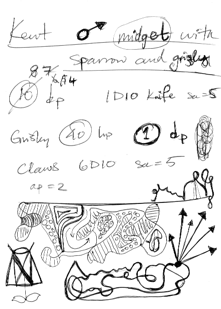 Kent midget with
Sparrow and grizly
87
16 dp 1D10 knife sa=5
Grizly 40 hp 1 dp
Claws 6D10 sa=5
ap=2